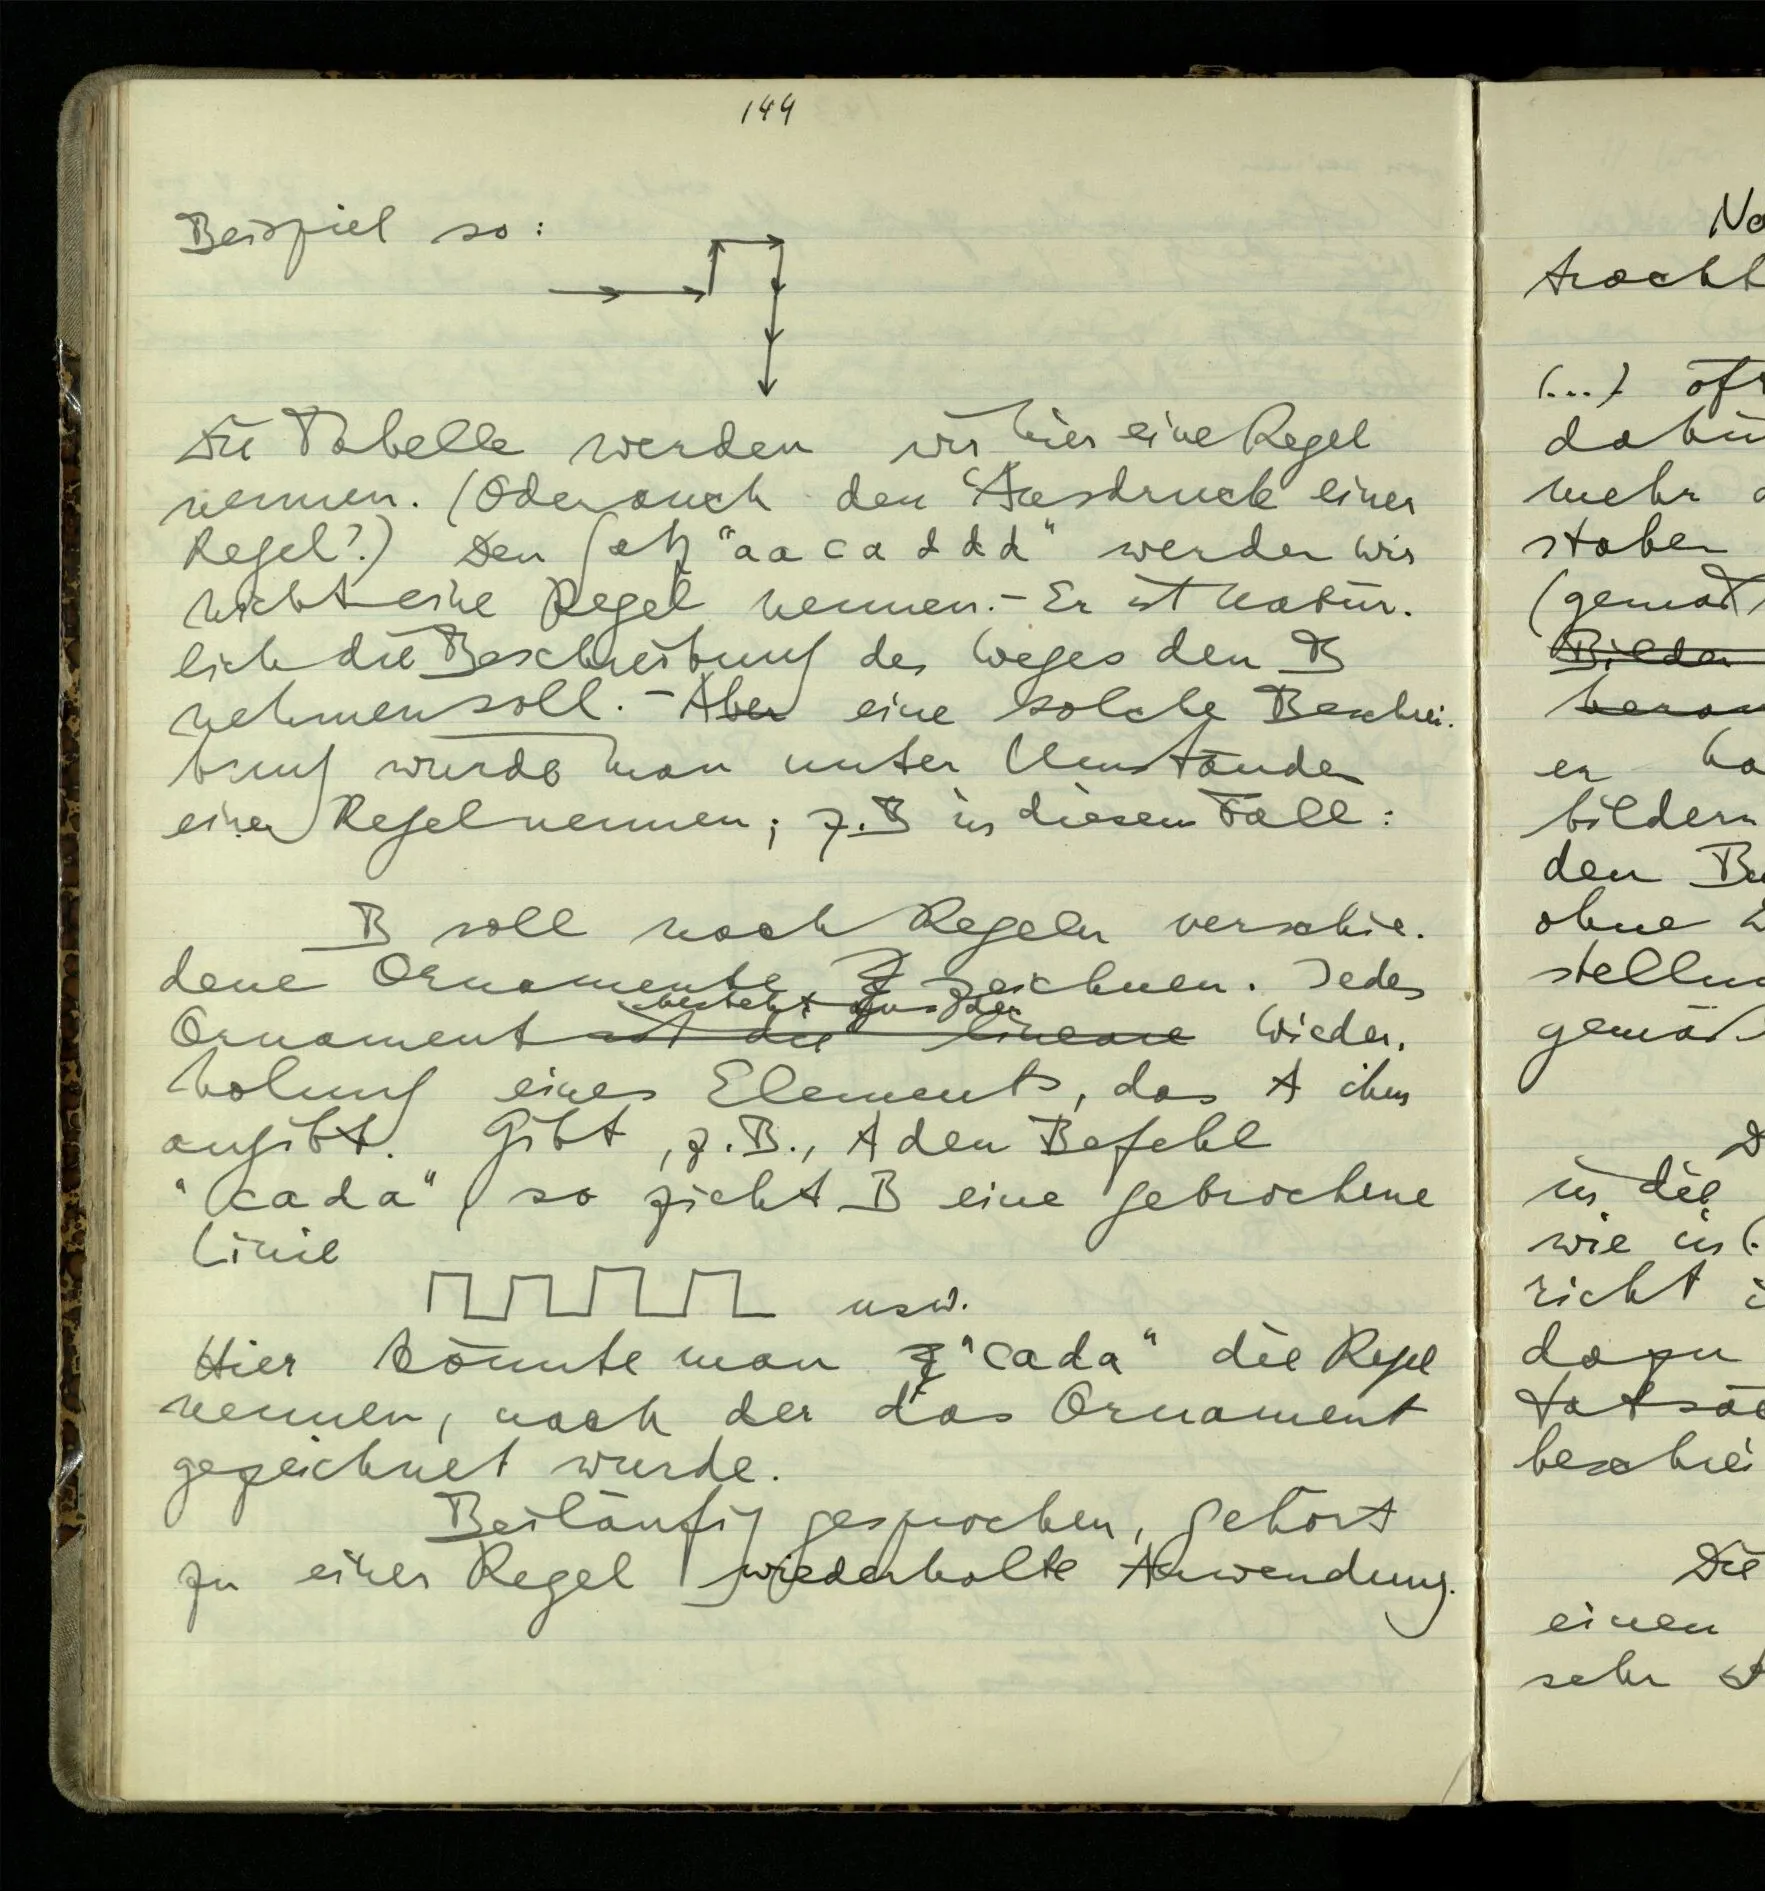 144
Beispiel so:
Die Tabelle werden wir hier eine Regel
nennen. (Oder auch den "Ausdruck einer
Regel"?) Den Satz "aacaddd" werden wir
nicht eine Regel nennen. – Er ist natür-
lich die Beschreibung des Weges den B
nehmen soll. – Aber eine solche Beschrei-
bung würde man unter Umständen
eine Regel nennen; z.B in diesem Fall:
B soll nach Regeln verschie-
dene Ornamente zeichnen. Jedes
besteht aus der
Ornament ist die lineare Wieder-
holung eines Elements, das A ihm
angibt. Gibt, z.B., A den Befehl
"cada", so zieht B eine gebrochene
Linie
usw.
Hier könnte man "cada" die Regel
nennen, nach der das Ornament
gezeichnet wurde.
Beiläufig gesprochen, gehört
zu einer Regel wiederholte Anwendung.
No
tracht
(...) öfr
mehr
staben
(gemäß
Bilder
er ha
bildern
den Bu
ohne
stellun
gemäß
D
in die
wie in (.
richt i
dazu
tatsäc
beschrei
Die
einen
sehr